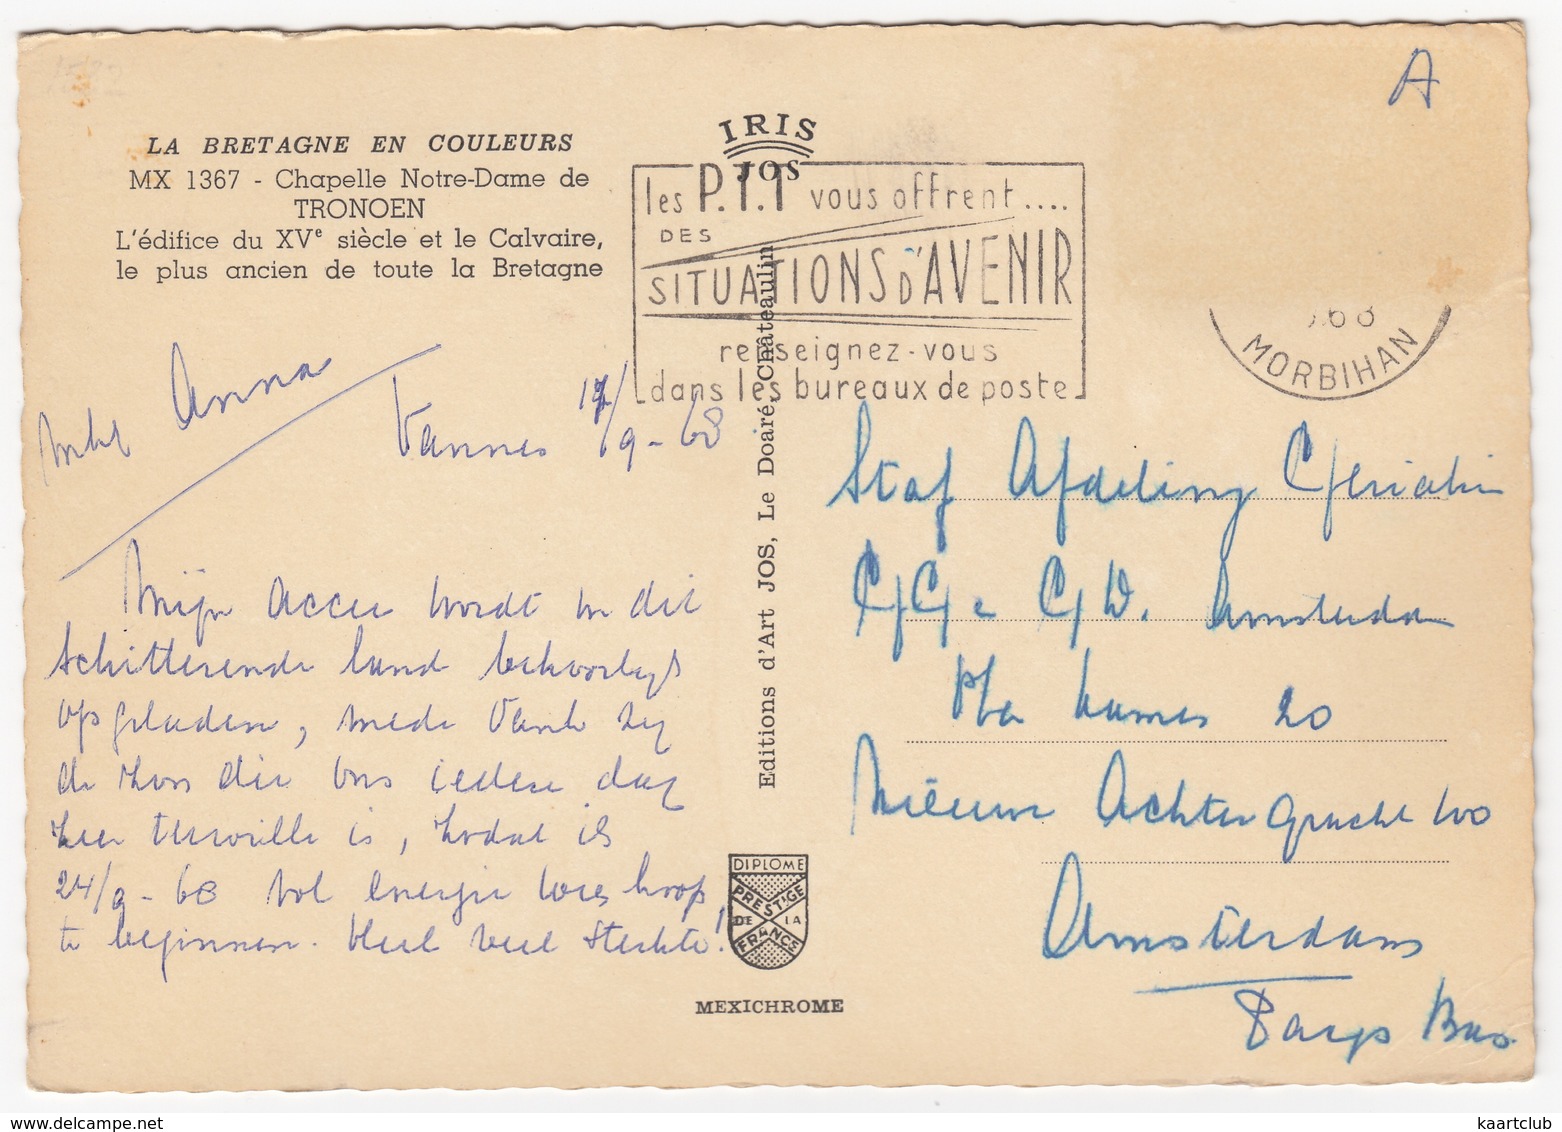 A
LA BRETAGNE EN COULEURS
MX 1367 - Chapelle Notre-Dame de
TRONOEN
L'édifice du XVe siècle et le Calvaire,
le plus ancien de toute la Bretagne
IRIS
JOS
les P.T.T vous offrent....
DES
SITUATIONS D'AVENIR
renseignez-vous
dans les bureaux de poste
68
MORBIHAN
Editions d'Art JOS, Le Doaré, Châteaulin
Anna
Vannes 17/9-68
Mijn accu wordt in dit
schitterende land behoorlijk
opgeladen, mede dank zij
de zon die ons iedere dag
zeer terwille is, zodat ik
24/9-68 vol energie weer hoop
te beginnen. Heel veel sterkte!
Staf Afdeling Geriatrie
GG e GD. Amsterdam
kamer 20
Nieuwe Achtergracht 100
Amsterdam
Pays Bas
DIPLOME
PRESTIGE
DE LA
FRANCE
MEXICHROME
kaartclub